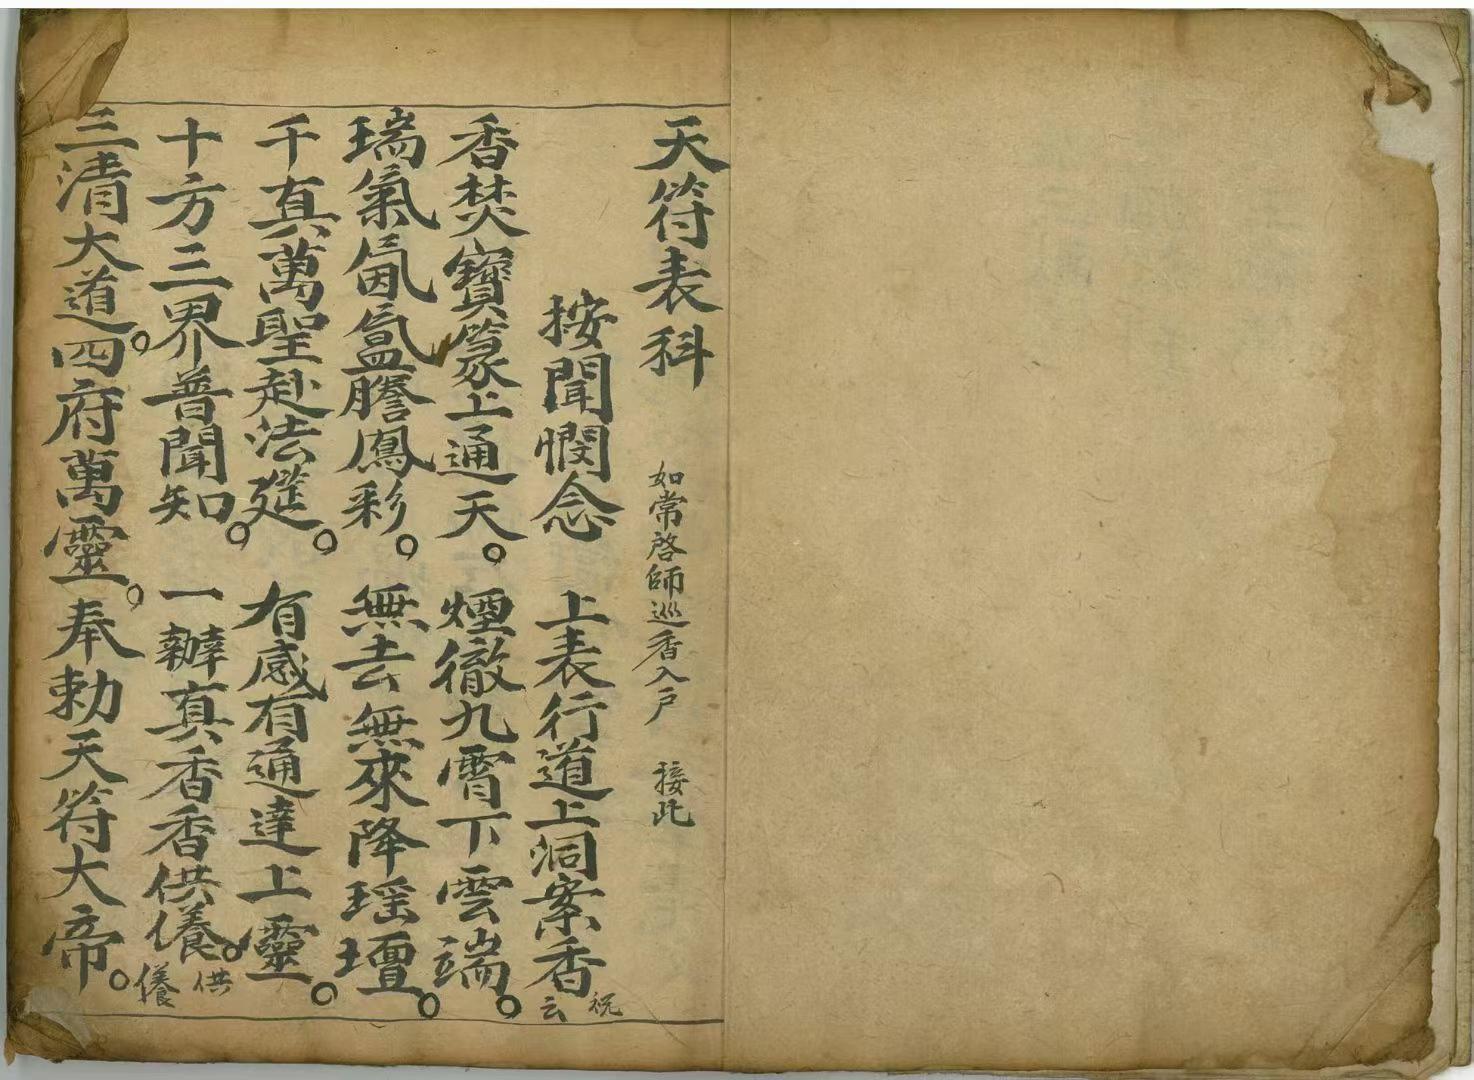 天符表科 如常啓師巡香入户 接此
按聞憫念 上表行道上洞案香 祝云
香焚寶篆上通天。煙徹九霄下雲端。
瑞氣氤氳騰鳳彩。無去無來降瑶壇。
千真萬聖赴法筵。有感有通達上靈。
十方三界普聞知。一辦真香香供養。供養
三清大道。四府萬靈。奉勅天符大帝。